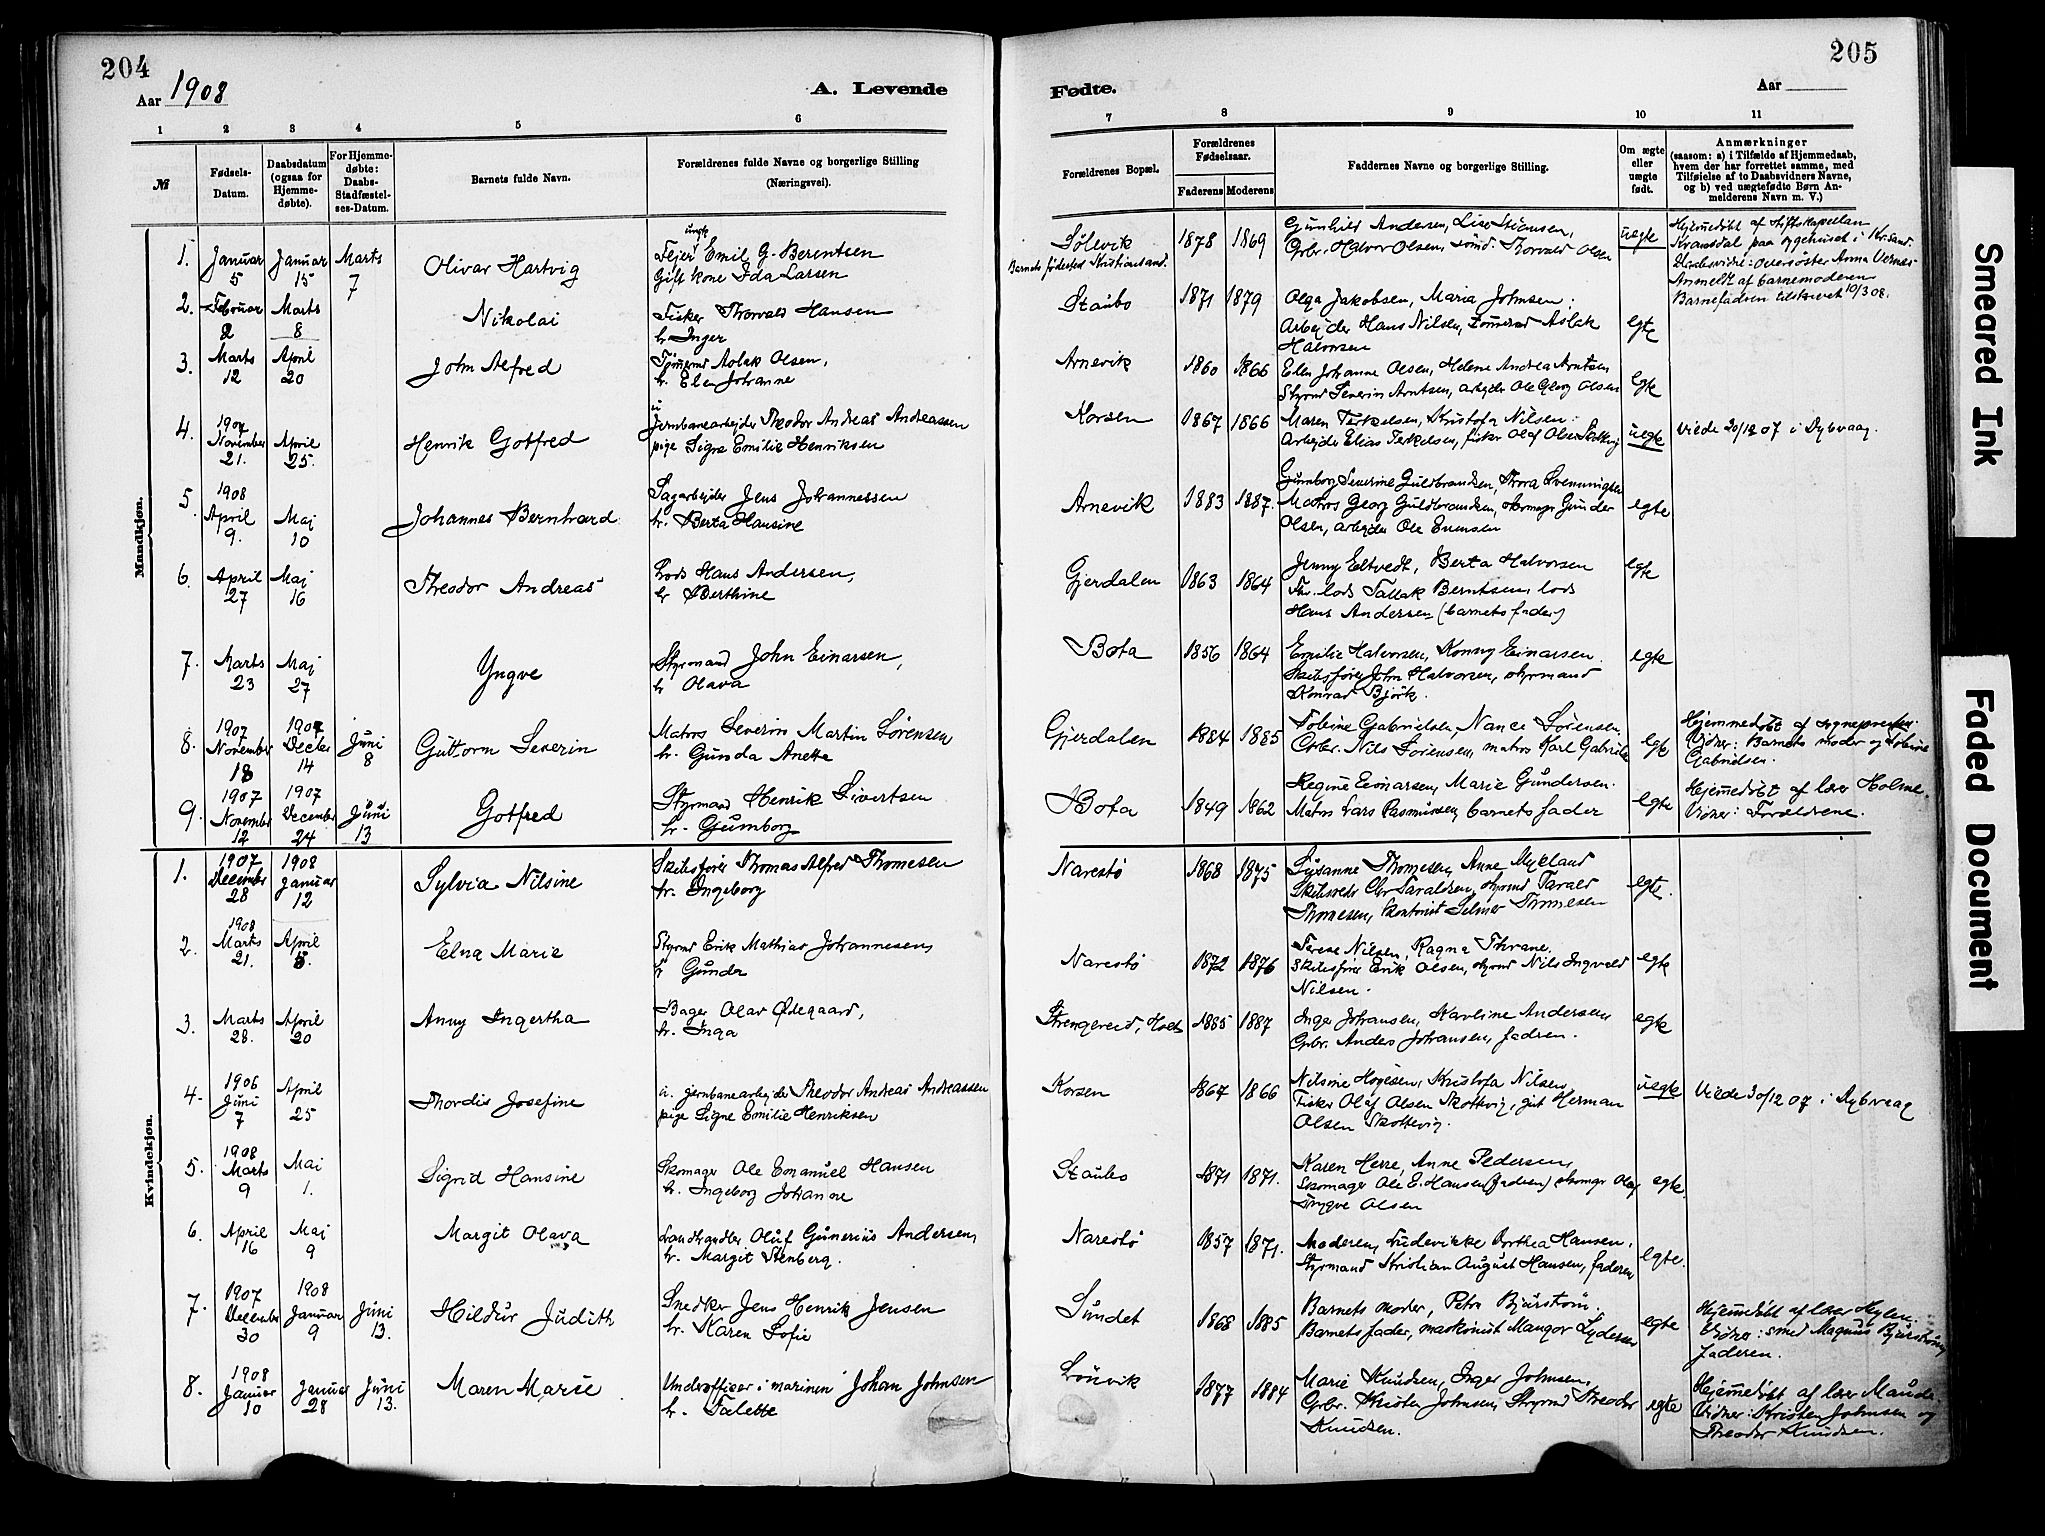 204
Aar 1908
A. Levende
1 2 3 4 5 6
№
Fødsels-
Datum.
Daabsdatum
(ogsaa for
Hjemme-
døbte).
For Hjemme-
døbte:
Daabs-
Stadfæstel-
ses-Datum.
Barnets fulde Navn.
Forældrenes fulde Navne og borgerlige Stilling
(Næringsvei).
Mandkjøn.
1. Januar 5 Januar 15 Marts 7 Olivar Hartvig
ungk
Emil G. Berentsen
Gift kone Ida Larsen
2. Februar 2 Marts 8 Nikolai
Fisker Thorvald Hansen
h. Inger
3. Marts 12 April 20 John Alfred
Tømmermd Aslak Olsen,
h. Elen Johanne
4. 1907 November 21. April 25. Henrik Gotfred
u
Jernbanearbejder Theodor Andreas Andreassen
pige Signe Emilie Henriksen
5. 1908 April 9. Maj 10 Johannes Bernhard
Sagarbejder Jens Johannessen
h. Berta Hansine
6. April 27 Maj 16 Theodor Andreas
Lods Hans Andersen,
h. Berthine
7. Marts 23 Maj 27 Yngve
Styrmand John Einarsen,
h. Olava
8. 1907 November 18 1907 Decbr 14 Juni 8 Guttorm Severin
Matros Severin Martin Sørensen
h. Gunda Anette
9. 1907 November 12 1907 December 24 Juni 13 Gotfred
Styrmand Henrik Sivertsen
h. Gumborg
Kvindekjøn.
1. 1907 December 28 1908 Januar 12 Sylvia Nilsine
Skibsfører Thomas Alfred Thomesen
h. Ingeborg
2. 1908 Marts 21. April 5. Elna Marie
Styrmd Erik Mathias Johannesen,
h. Gunda
3. Marts 28. April 20 Anny Ingertha
Bager Olav Ødegaard,
h. Inga
4. 1906 Juni 7 April 25 Thordis Josefine
u. jernbanearbejder Theodor Andreas Andreassen
pige Signe Emilie Henriksen
5. 1908 Marts 9 Maj 1. Sigrid Hansine
Skomager Ole Emanuel Hansen
h. Ingeborg Johanne
6. April 16 Maj 9 Margit Olava
Landhandler Oluf Gunerius Andersen,
h. Margit Stenberg.
7. 1907 December 30 1908 Januar 9 Juni 13. Hildur Judith
Snedker Jens Henrik Jensen
h. Karen Sofie
8. 1908 Januar 10 Januar 28 Juni 13. Maren Marie
Underofficer i marinen Johan Johnsen
h. Talette
205
Fødte.
Aar
7 8 9 10 11
Forældrenes Bopæl.
Forældrenes
Fødselsaar.
Faderens Moderens
Faddernes Navne og borgerlige Stilling.
Om ægte
eller
uægte
født.
Anmærkninger
(saasom: a) i Tilfælde af Hjemmedaab,
hvem der har forrettet samme, med
Tilføielse af to Daabsvidners Navne,
og b) ved uægtefødte Børn An-
melderens Navn m. V.)
Sølevik
Barnets fødested Kristiansand.
1878 1869
Gunhild Andersen,
Grbr. Halvor Olsen, Thorvald Olsen
uegte
Hjemmedøbt af stiftskapellan
paa sygehuset i Kr.sand.
Anna
Anmeldt af barnemoderen
Barnefadren tilskrevet 10/3 08.
Staubo 1871 1879
Olga Jakobsen, Maria Johnsen.
Arbejder Hans Nilsen, Aslak
Halvorsen
egte
Arnevik 1860 1866
Elen Johanne Olsen, Helene Andrea Arntsen
Styrmd Severin Arntsen, arbejder Ole Georg Olsen
egte
Korsen 1867 1866
Maren Terkelsen, Kristofa Nilsen.
Arbejder Elias Terkelsen, fisker Olaf Olsen Skottevig
uegte
Viede 30/12 07 i Dybvaag.
Arnevik 1883 1887.
Gumborg Severine Guldbrandsen, Thora
Matros Georg Guldbrandsen, Gunder
Olsen, arbejder Ole Evensen
egte
Gjerdalen 1863 1864
Jenny Eltvedt, Berta Halvorsen
lods Tallak Berntsen, lods
Hans Andersen (barnets fader)
egte
Bota 1856 1864
Emilie Halvorsen, Einarsen.
Skibsfører John Halvorsen, styrmand
Konrad Björk.
egte
Gjerdalen 1884 1885
Tobine Gabrielsen, Nance Sørensen,
Grbr. Nils Sørensen, matros Karl Gabrielsen
egte
Hjemmedøbt af sogneprestn.
Vidner: Barnets moder og Tobine
Gabrielsen.
Bota 1849 1862
Regine Einarsen, Marie Gundersen.
Matros Lars Rasmussen, barnets fader
egte
Hjemmedøbt af lærer Holme.
Vidner: Forældrene.
Narestø 1868 1875
Susanne Thomesen, Anne Mykland
Chr Taraldsen, styrmd Tarald
Thomesen, kontorist Selmer Thomesen
egte.
Narestø 1872 1876
Terese Nilsen, Ragna Thrane.
Skibsfører Erik Olsen, styrmd Nils Ingvald
Nilsen.
egte
Strengereid, Holt 1885 1887
Inger Johansen, Karoline Andersen,
Grbr. Anders Johansen, fadren.
egte
Korsen 1867 1866
Nilsine Kristofa Nilsen,
Fisker Oluf Olsen Skottevig, gut Herman
Olsen Skottevig.
uegte
Viede 30/12 07 i Dybvaag
Staubo 1871 1871.
Karen Herre, Anne Pedersen,
Skomager Ole E. Hansen (fadren) skomgr Olaf
Trygve Olsen
egte.
Narestø 1857 1871.
Moderen, Ludevikke Dorthea Hansen.
Styrmand Kristian August Hansen, faderen
egte.
Sundet 1868 1885
Barnets moder, Petra Bjurstrøm.
Barnets fader, maskinist Lydersen
egte
Hjemmedøbt af lærer
Vidner: smed Magnus Bjurstrøm,
faderen.
Lönvik 1877 1884
Marie Knudsen, Inger Johnsen,
Grbr. Kristen Johnsen, Styrmd Theodor
Knudsen.
egte
Hjemmedøbt af lærer
Vidner: Kristen Johnsen og
Theodor Knudsen.
Smeared Ink
Faded Document